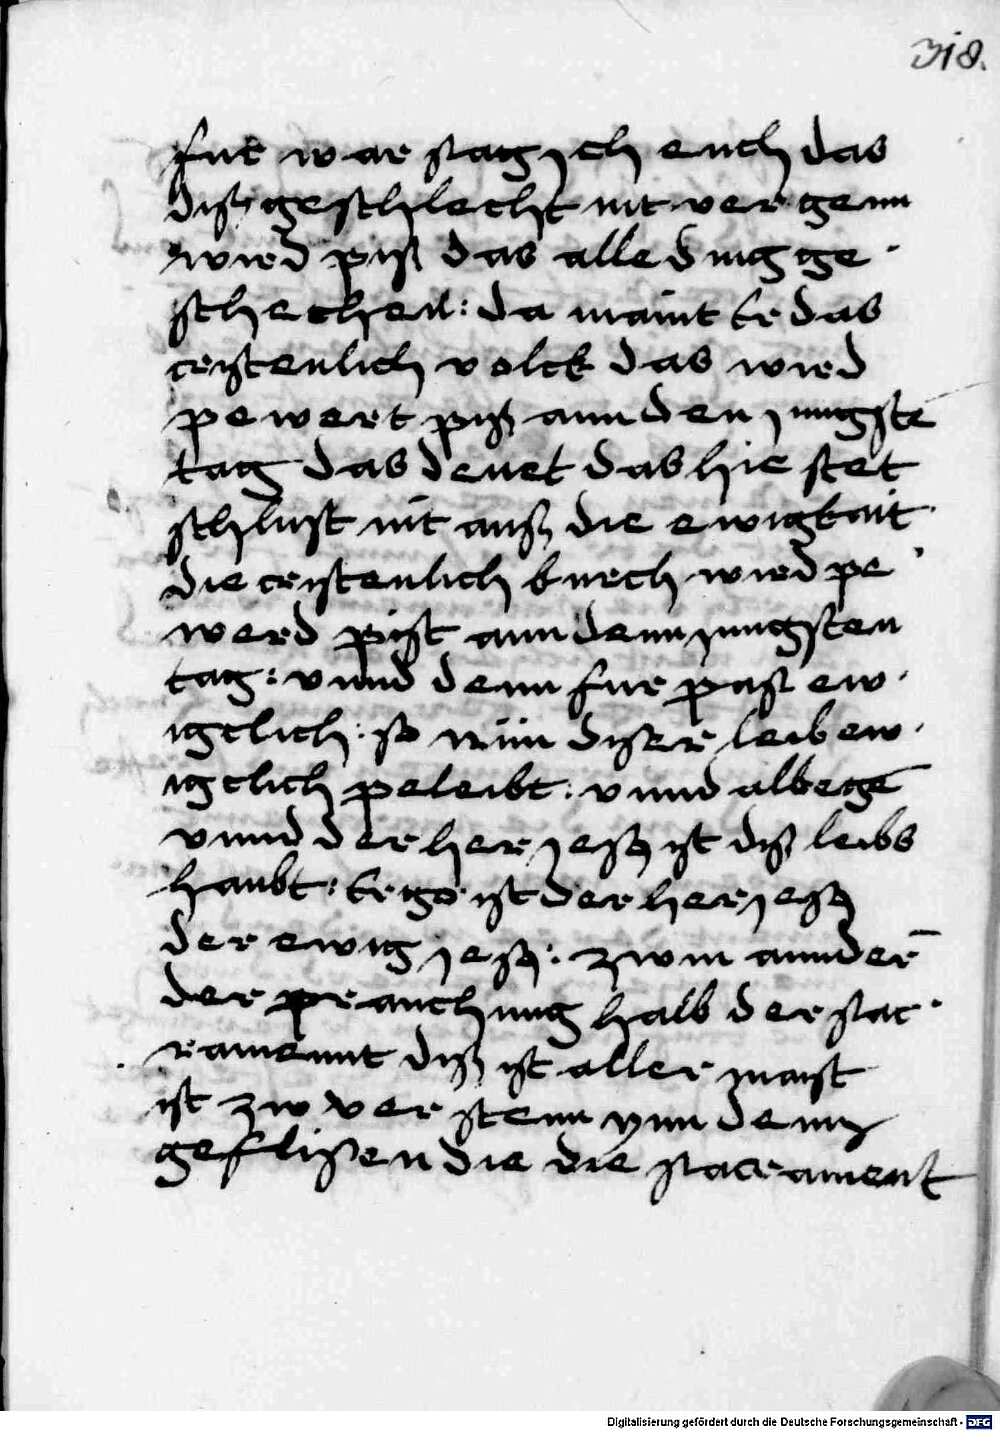 318.
fur war stag ych euch das
diß geschlecht nit ver genn
wird piß das alle ding ge
schechen: da maint Er das
cristenlich volck das wird
pewert piß ann den jungstē
tag das deuet das hie stet
schlust nit auß die ewigkait
die cristenlich kurch wird pe
werd pist ann denn jungsten
tag: vnnd denn fur past ew
igclich: so nün diser leib ew
igclich peleibt: vnnd albegē
vnnd der her jesus ist diß leibs
haubt: Ergo ist der her jesus
der ewig jesus: zwm annderē
der prauchung halb der sac
ramennt diß ist aller maist
ist zw verstenn ynn denn
geflißen die die sacrament
Digitalisierung gefördert durch die Deutsche Forschungsgemeinschaft - DFG